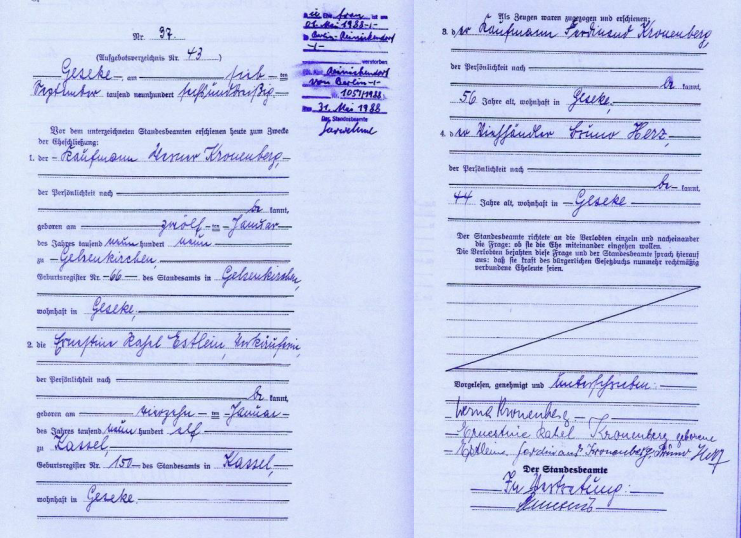 Nr. 37.
(Aufgebotsverzeichnis Nr. 43)
Geseke, am sieb ten
September tausend neunhundert sechsunddreißig.
Vor dem unterzeichneten Standesbeamten erschienen heute zum Zwecke
der Eheschließung:
1. der Kaufmann Werner Kronenberg,
der Persönlichkeit nach
be kannt,
geboren am zwölf ten Januar
des Jahres tausend neun hundert neun
zu Gelsenkirchen,
Geburtsregister Nr. 66 des Standesamts in Gelsenkirchen,
wohnhaft in Geseke,
2. die Ernestine Rahel Estlein, Verkäuferin,
der Persönlichkeit nach
be kannt,
geboren am vierzehn ten Januar
des Jahres tausend neun hundert elf
zu Kassel,
Geburtsregister Nr. 150 des Standesamts in Kassel,
wohnhaft in Geseke.
Frau
01. Mai 1988
Berlin-Reinickendorf
verstorben
Reinickendorf
von Berlin
1051/1988
31. Mai 1988
Der Standesbeamte
Als Zeugen waren zugezogen und erschienen:
3. der Kaufmann Ferdinand Kronenberg,
der Persönlichkeit nach
be kannt,
56 Jahre alt, wohnhaft in Geseke,
4. der Viehhändler Bruno Herz,
der Persönlichkeit nach
be kannt,
44 Jahre alt, wohnhaft in Geseke
Der Standesbeamte richtete an die Verlobten einzeln und nacheinander
die Frage: ob sie die Ehe miteinander eingehen wollen.
Die Verlobten bejahten diese Frage und der Standesbeamte sprach hierauf
aus: daß sie kraft des bürgerlichen Gesetzbuchs nunmehr rechtmäßig
verbundene Eheleute seien.
Vorgelesen, genehmigt und unterschrieben:
Werner Kronenberg
Ernestine Rahel Kronenberg geborene
Estlein. Ferdinand Kronenberg. Bruno Herz
Der Standesbeamte
In Vertretung: